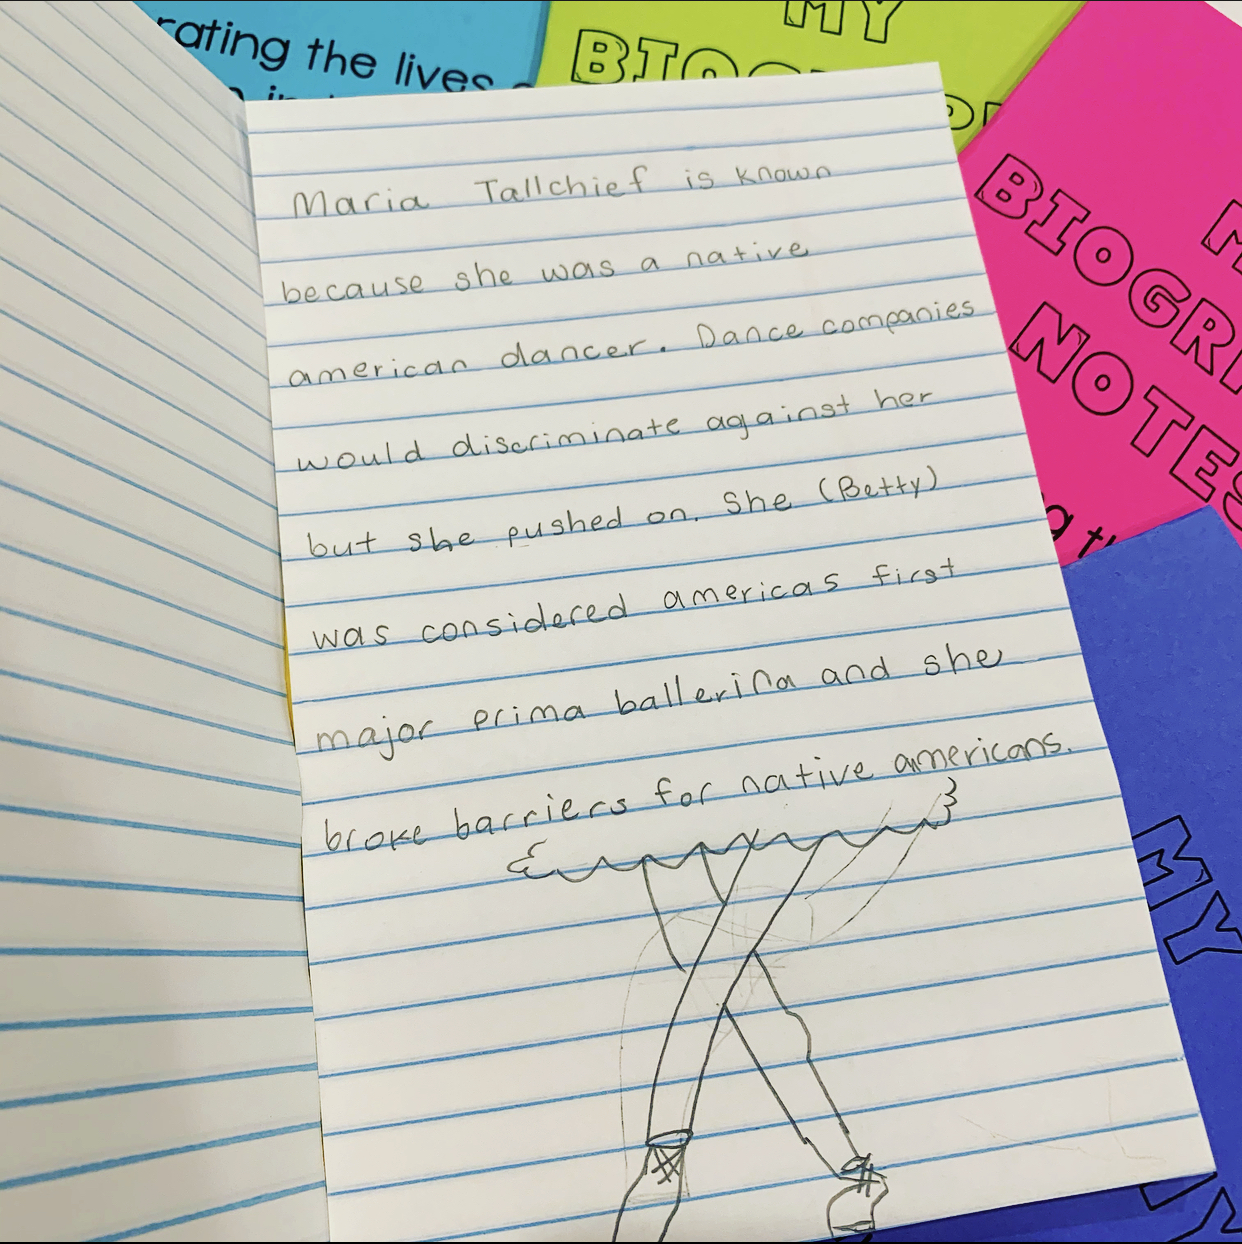 rating the lives
MY
Maria Tallchief is known
because she was a native
american dancer. Dance companies
would discriminate against her
but she pushed on. She (Betty)
was considered americas first
major prima ballerina and she
broke barriers for native americans.
NOTES
MY